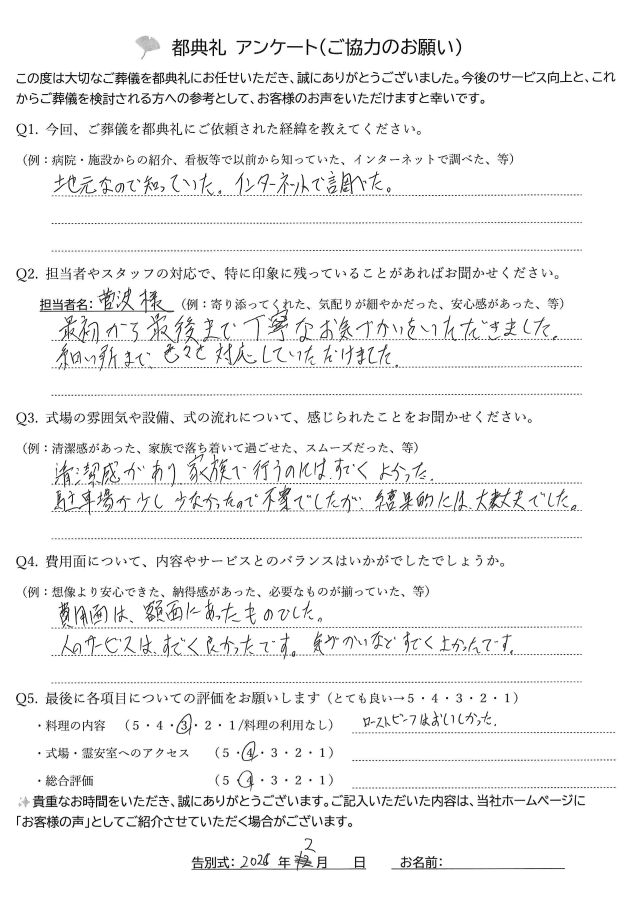 都典礼 アンケート（ご協力のお願い）
この度は大切なご葬儀を都典礼にお任せいただき、誠にありがとうございました。今後のサービス向上と、これ
からご葬儀を検討される方への参考として、お客様のお声をいただけますと幸いです。
Q1. 今回、ご葬儀を都典礼にご依頼された経緯を教えてください。
（例：病院・施設からの紹介、看板等で以前から知っていた、インターネットで調べた、等）
地元なので知っていた。インターネットで調べた。
Q2. 担当者やスタッフの対応で、特に印象に残っていることがあればお聞かせください。
担当者名：菅波様 （例：寄り添ってくれた、気配りが細やかだった、安心感があった、等）
最初から最後まで丁寧なお気づかいをいただきました。
細い所まで、色々と対応していただけました。
Q3. 式場の雰囲気や設備、式の流れについて、感じられたことをお聞かせください。
（例：清潔感があった、家族で落ち着いて過ごせた、スムーズだった、等）
清潔感があり、家族で行うのには、すごくよかった。
駐車場が少し少なかったので不安でしたが、結果的には、大丈夫でした。
Q4. 費用面について、内容やサービスとのバランスはいかがでしたでしょうか。
（例：想像より安心できた、納得感があった、必要なものが揃っていた、等）
費用面は、額面にあったものでした。
人のサービスは、すごく良かったです。気づかいなどすごく上かったです。
Q5. 最後に各項目についての評価をお願いします（とても良い→5・4・3・2・1）
・料理の内容 （5・4・3・2・1/料理の利用なし） ローストビーフはおいしかった。
・式場・霊安室へのアクセス （5・4・3・2・1）
・総合評価 （5・4・3・2・1）
貴重なお時間をいただき、誠にありがとうございます。ご記入いただいた内容は、当社ホームページに
「お客様の声」としてご紹介させていただく場合がございます。
告別式：2026年 2月 日 お名前：